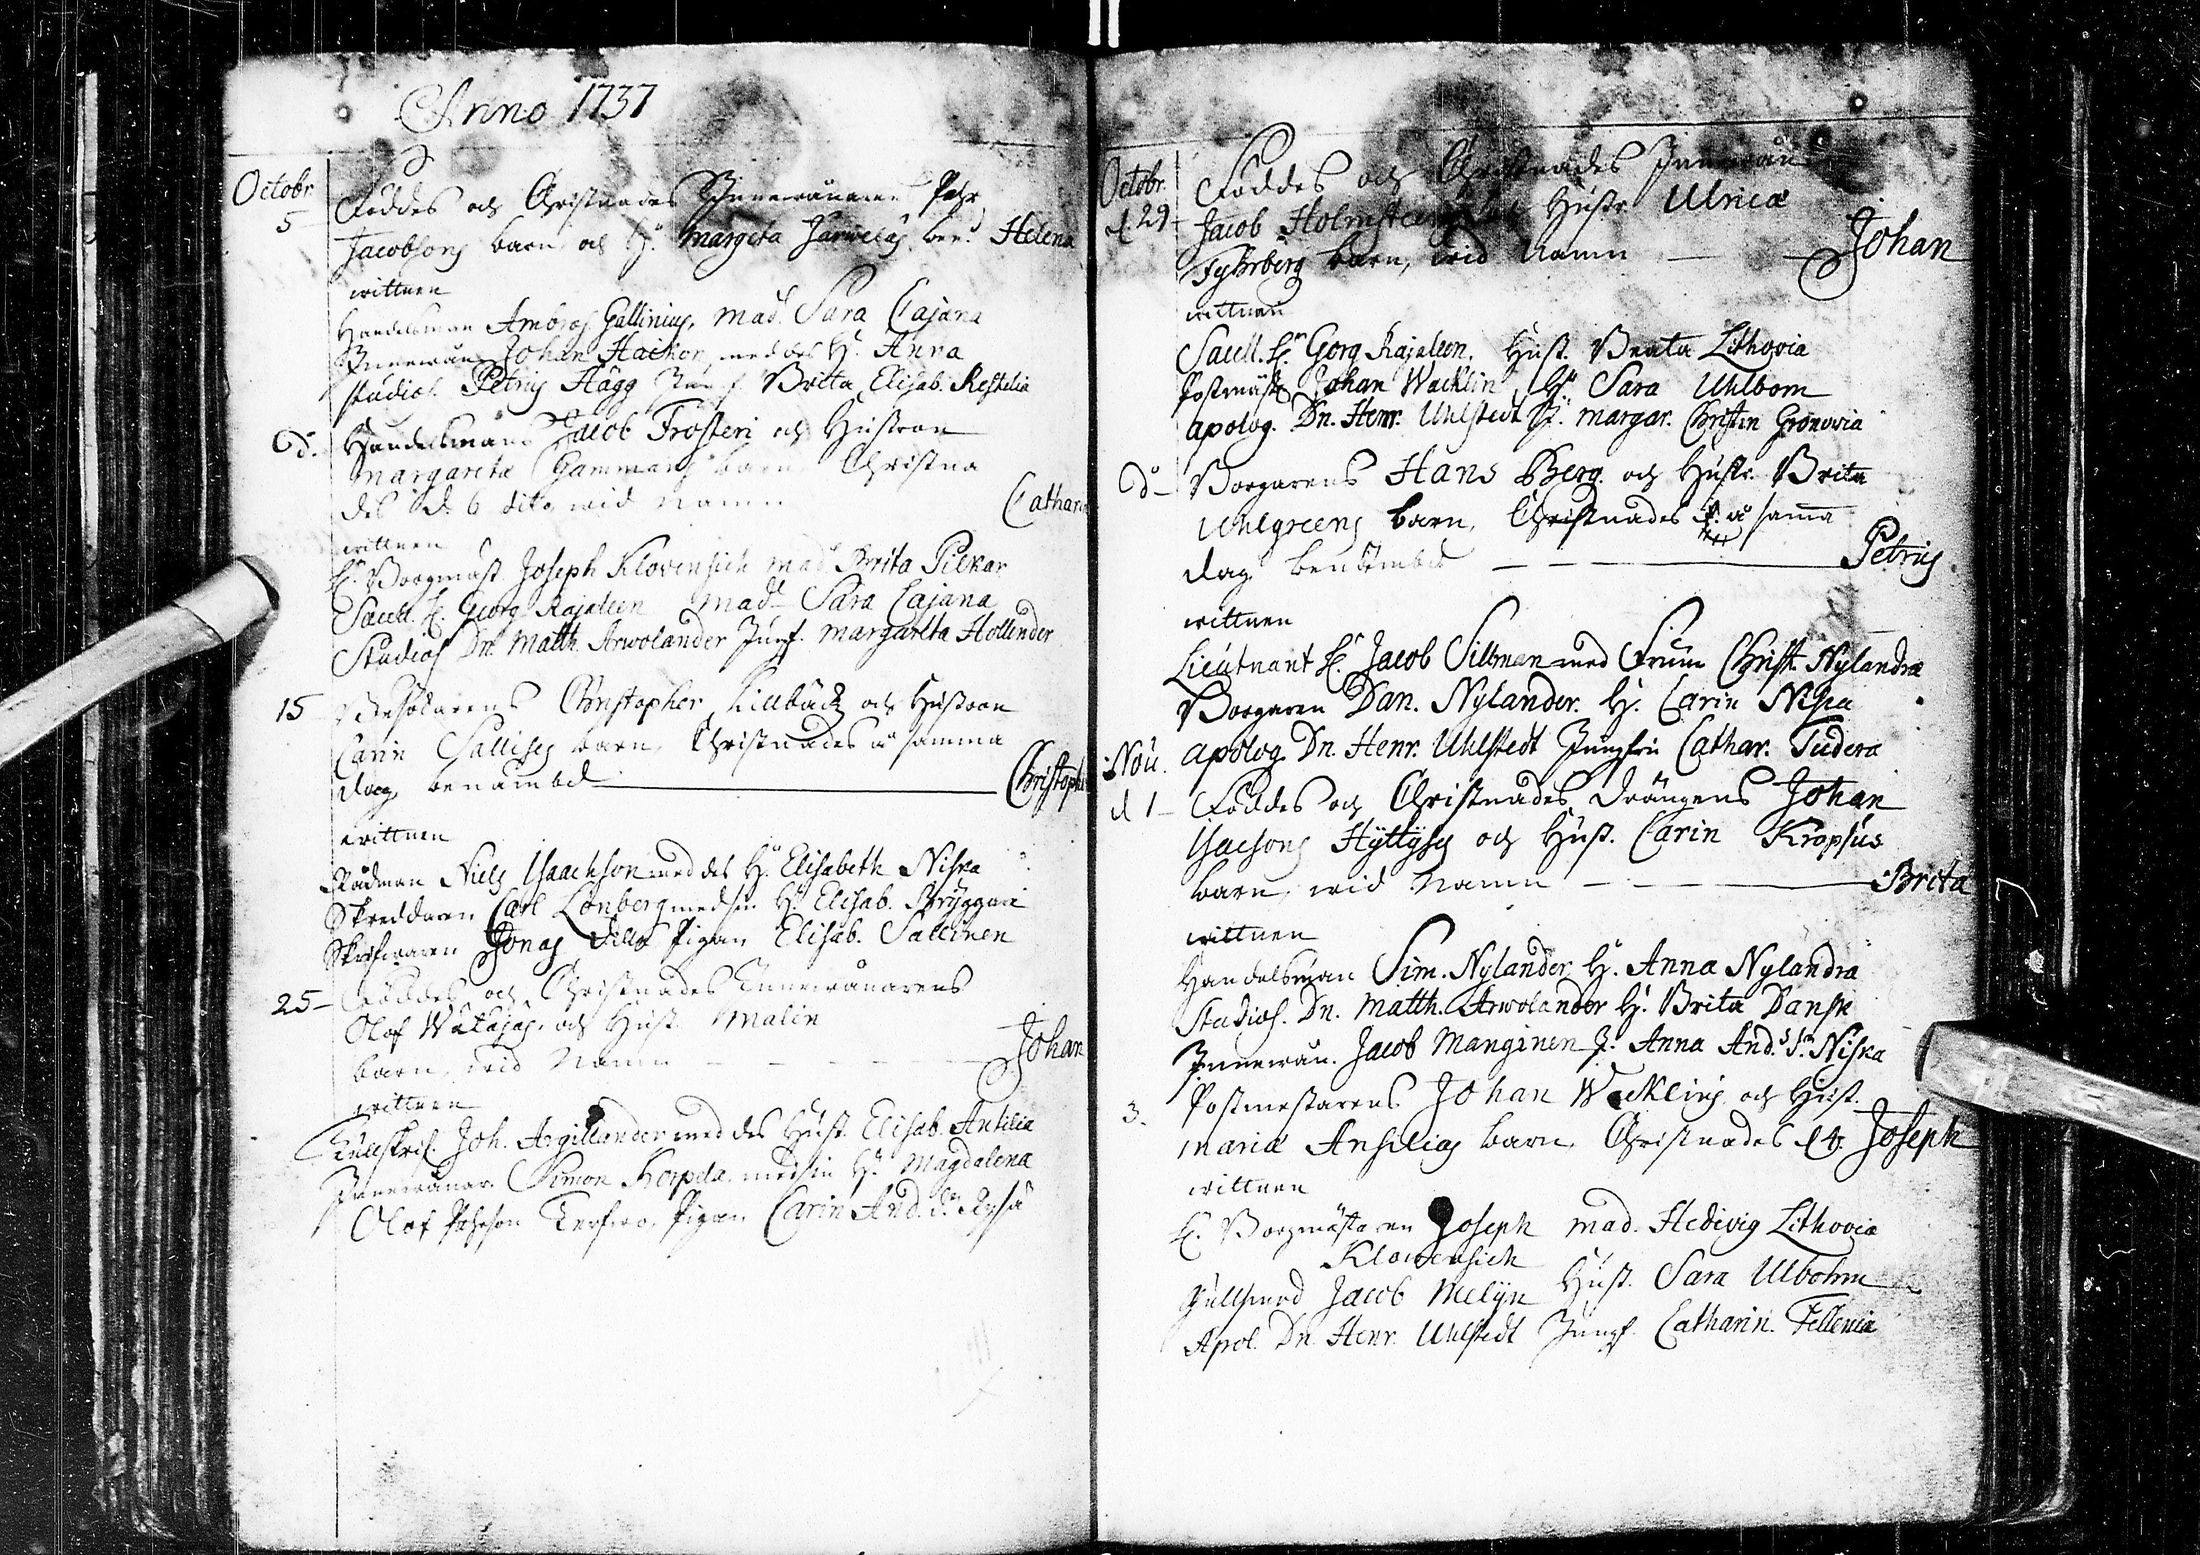 Anno 1737
Octobr.
5 Föddes och Christnades Inneswånaren Pehr
Jacobsons barn och H. Margeta Jarwelas ben. Helena
wittnen
Handelsman Ambros Gallinius, Mad. Sara Cajana
Johan Haikor med des H. Anna
studios. Petrus Hägg Jungf. Brita Elisab. Restelia
d. Handelsmans Jacob Frosteri och Hustrun
Margareta Gammaris barn Christna
des d. 6 dito wid Namn Cathar
wittnen
H. Borgmäst. Joseph Klovensich mad Brita Pilkar
Sacell. H. Georg Kajaleen Mad. Sara Cajana
Studios Dn. Matth. Arwolander Jungf. Margareta Hollender
15 Christopher Lillbäck och Hustrun
Carin Sallises barn, Christnades a samma
dag, benämbd Christoph
wittnen
Rådman Niels Isaachson med des H. Elisabeth Niska
Skreddaren Carl Lönberg med sin H. Elisab. Bryggare
Jonas Lilla Pigan Elisab. Sallinen
25 Föddes och Christnades Inneswånarens
Olof och Hust. Malin
barn, wid Namn Johan
wittnen
Tullskrif. Joh. Argillander med des Hust. Elisab. Ansilia
Inneswånar. Simon Korpela med sin H. Magdalena
Olof Pehrson Pigan Carin And. dr.
Octobr.
d. 29 Föddes och Christnades Inneswån
Jacob Holmsteens och Hustr. Ulrica
Fyhrberg barn, wid Namn Johan
wittnen
Sacell. H. Gorg Kajaleen, Hust. Beata Lithovia
Postmäst. Johan Wacklin, H. Sara Uhlbom
Apolog. Dn. Henr. Uhlstedt H. Margar. Christin Gronovia
d Borgarens Hans Berg. och Hustr. Brita
Uhlgreens barn, Christnades a sama
dag benämbd Petrus
wittnen
Lieutnant H. Jacob Sillman med Fruu Christ. Nylandra
Borgaren Dan. Nylander. H. Carin Niska
Apolog Dn. Henr. Uhlstedt Jungfru Cathar. Tudera
Nov.
d 1 Föddes och Christnades drängens Johan
Isacsons Hyttyses och Hust. Carin Kropsus
barn, wid Namn Brita
wittnen
Handelsman Sim. Nylander H. Anna Nylandra
Studios. Dn. Matth. Arwolander H. Brita Dansk
Inneswån. Jacob Manginen P. Anna And. dr. Niska
3. Postmestarens Johan Wacklins och Hust.
Maria Ansilias barn, Christnades d 4. Joseph
wittnen
H. Borgmästaren Joseph mad. Hedivig Lithovia
Klowensich
Jacob Melijn Hust. Sara Ulbohm
Apol. Dn. Henr. Uhlstedt Jungf. Catharin. Fellenia